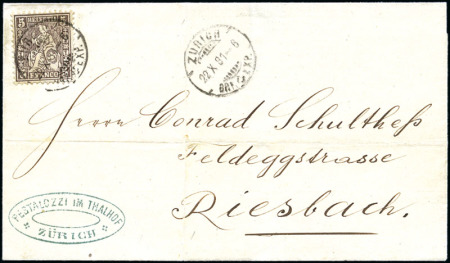 5 HELVETIA
FRANCO
ZÜRICH
22 X 81 - 6
BRF. EXP.
Herrn Conrad Schulthess
Feldeggstrasse
Riesbach.
PESTALOZZI IM THALHOF
ZÜRICH